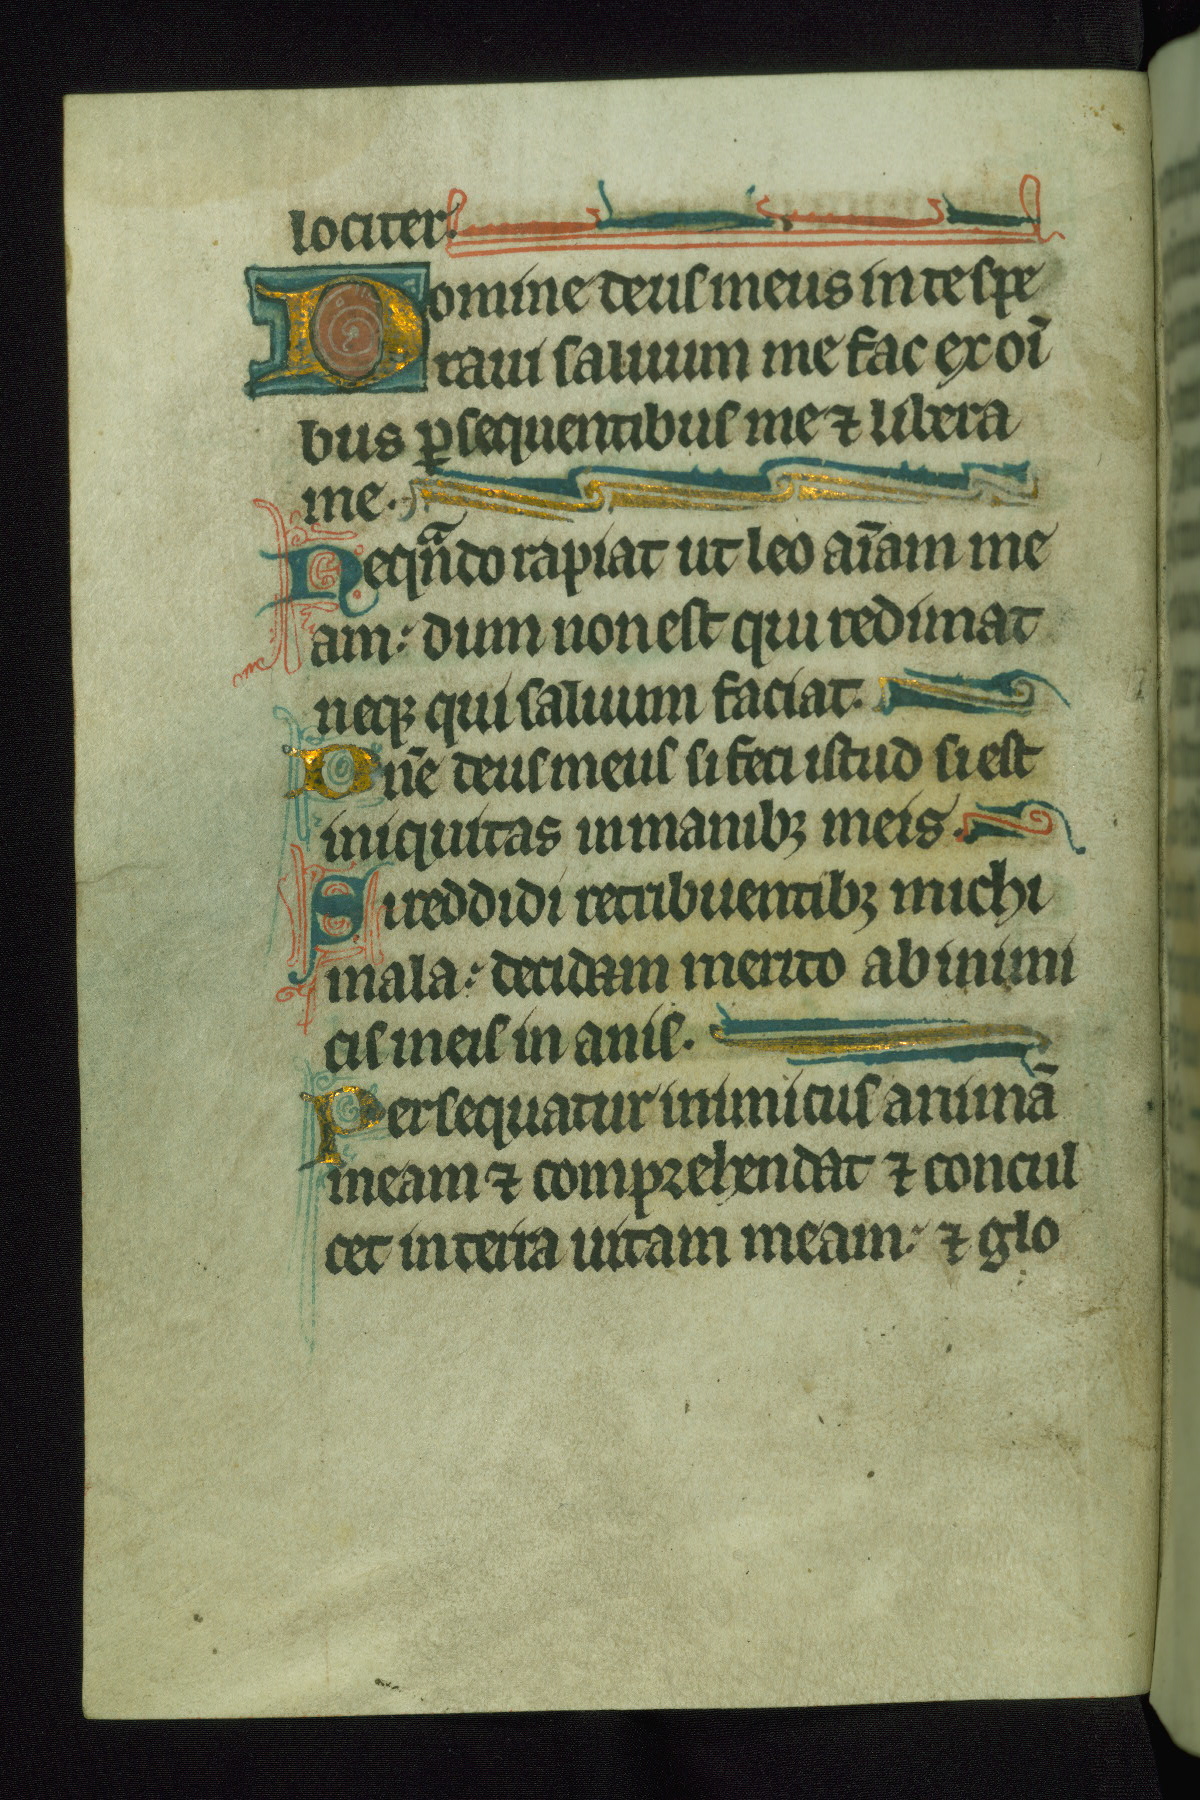 lociter.
Domine deus meus in te spe
raui saluum me fac ex oı̄
bus ꝑsequentibus me ⁊ libera
me.
Nequn̄do rapiat ut leo aı̄am me
am: dum non est qui redimat
neqꝫ qui saluum faciat.
Dn̄e deus meus si feci istud si est
iniquitas in manibꝫ meis.
Si reddidi retribuentibꝫ michi
mala: decidam merito ab inimi
cis meis in anis.
Persequatur inimicus animā
meam ⁊ comprehendat ⁊ concul
cet in terra uitam meam: ⁊ glo